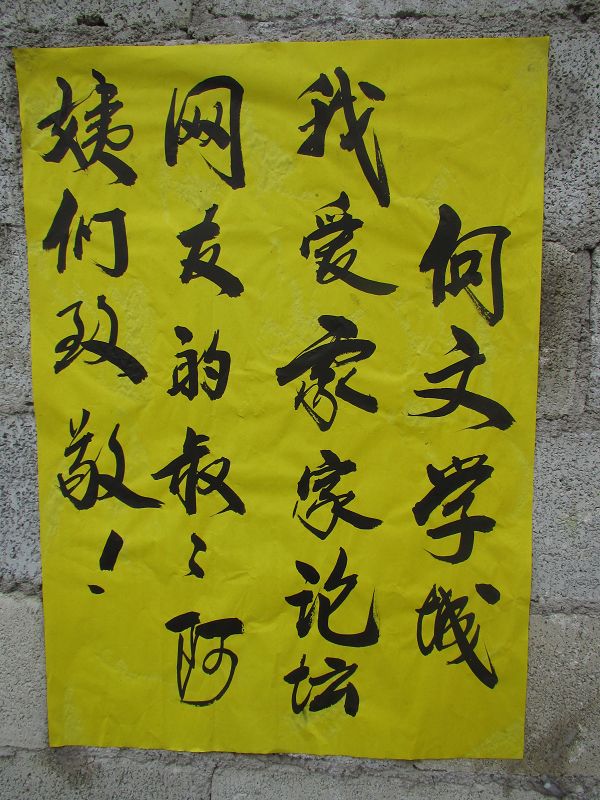 向文学城
我爱家家论坛
网友的叔々阿
姨们致敬！